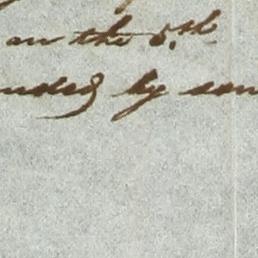 on the 5.th
nded by som